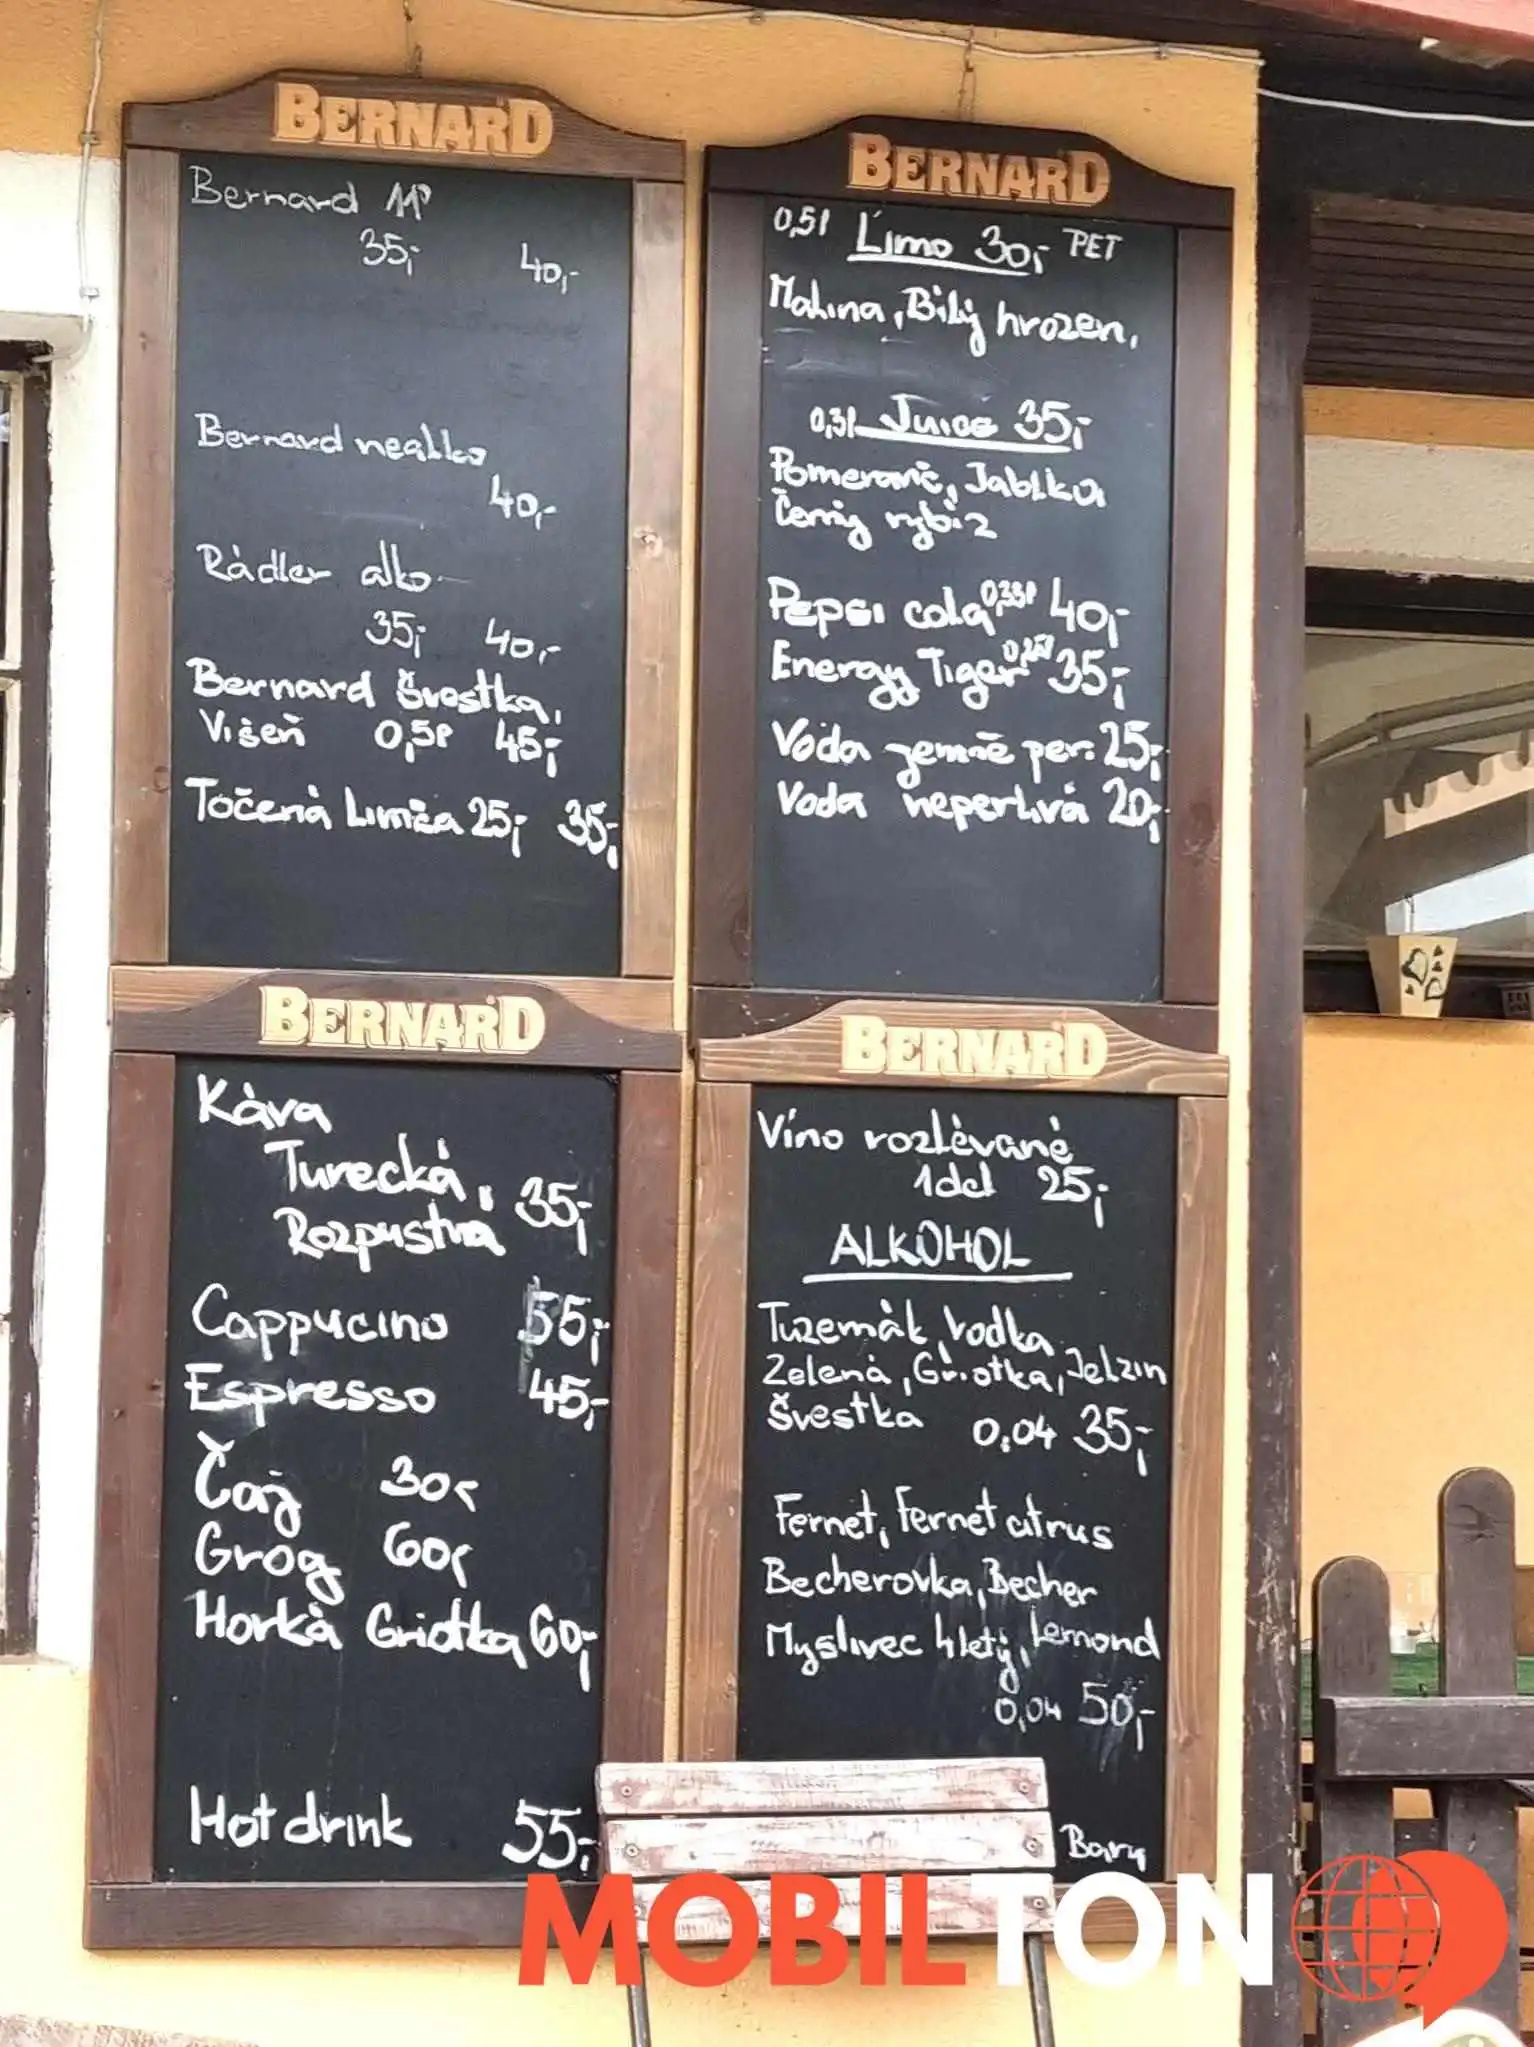 BERNARD
Bernard 11°
35,- 40,-
Bernard nealko
40,-
Rádler alko
35,- 40,-
Bernard Švestka,
Višeň 0,5l 45,-
Točená Limča 25,- 35,-
BERNARD
0,5l Limo 30,- PET
Malina, Bílý hrozen,
0,3l Juice 35,-
Pomeranč, Jablko,
Černý rybíz
Pepsi cola 0,33l 40,-
Energy Tiger 35,-
Voda jemně per. 25,-
Voda neperlivá 20,-
BERNARD
Káva
Turecká,
Rozpustná 35,-
Cappucino 55,-
Espresso 45,-
Čaj 30,-
Grog 60,-
Horká Griotka 60,-
Hot drink 55,-
BERNARD
Víno rozlévané
1dcl 25,-
ALKOHOL
Tuzemák, Vodka,
Zelená, Griotka, Jelzin
Švestka 0,04 35,-
Fernet, Fernet citrus
Becherovka, Becher
Myslivec 4letý, Lemond
0,04 50,-
MOBILTON